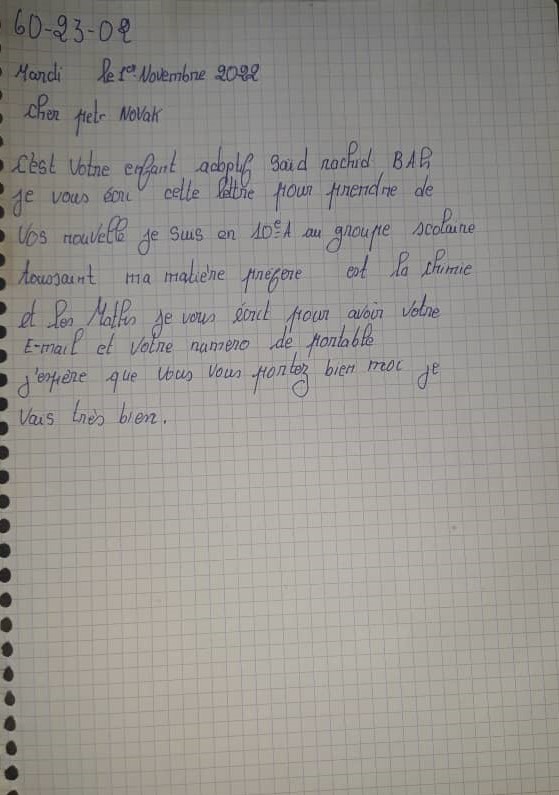 60-23-02
Mardi le 1er Novembre 2022
cher petr Novak
C'est Votre enfant adoptif Said rachid BAH
je vous écri cette lettre pour prendre de
Vos nouvelle je suis en 10e A au groupe scolaire
toussaint ma matière préfère est la chimie
et les Maths je vous écrit pour avoir Votre
E-mail et Votre numero de portable
j'espère que Vous Vous portez bien moi je
Vais très bien.